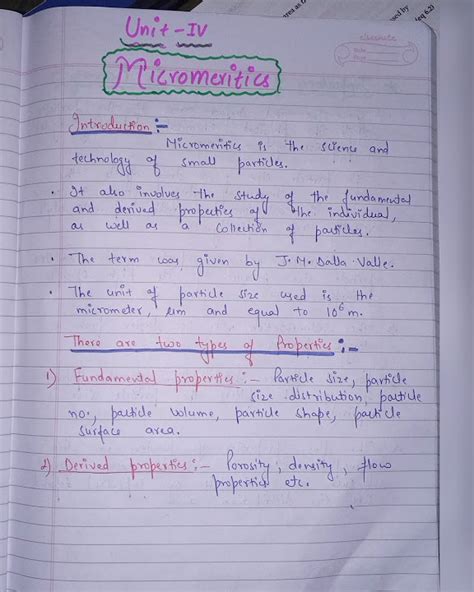 Unit-IV
Micromeritics
Introduction:-
Micromeritics is the science and
technology of small particles.
• It also involves the study of the fundamental
and derived properties of the individual,
as well as a collection of particles.
• The term was given by J. M. Dalla Valle.
• The unit of particle size used is the
micrometer, μm and equal to 10⁶ m.
There are two types of Properties:-
1) Fundamental properties:- Particle size, particle
size distribution, particle
no., particle volume, particle shape, particle
surface area.
2) Derived properties:- Porosity, density, flow
properties etc.